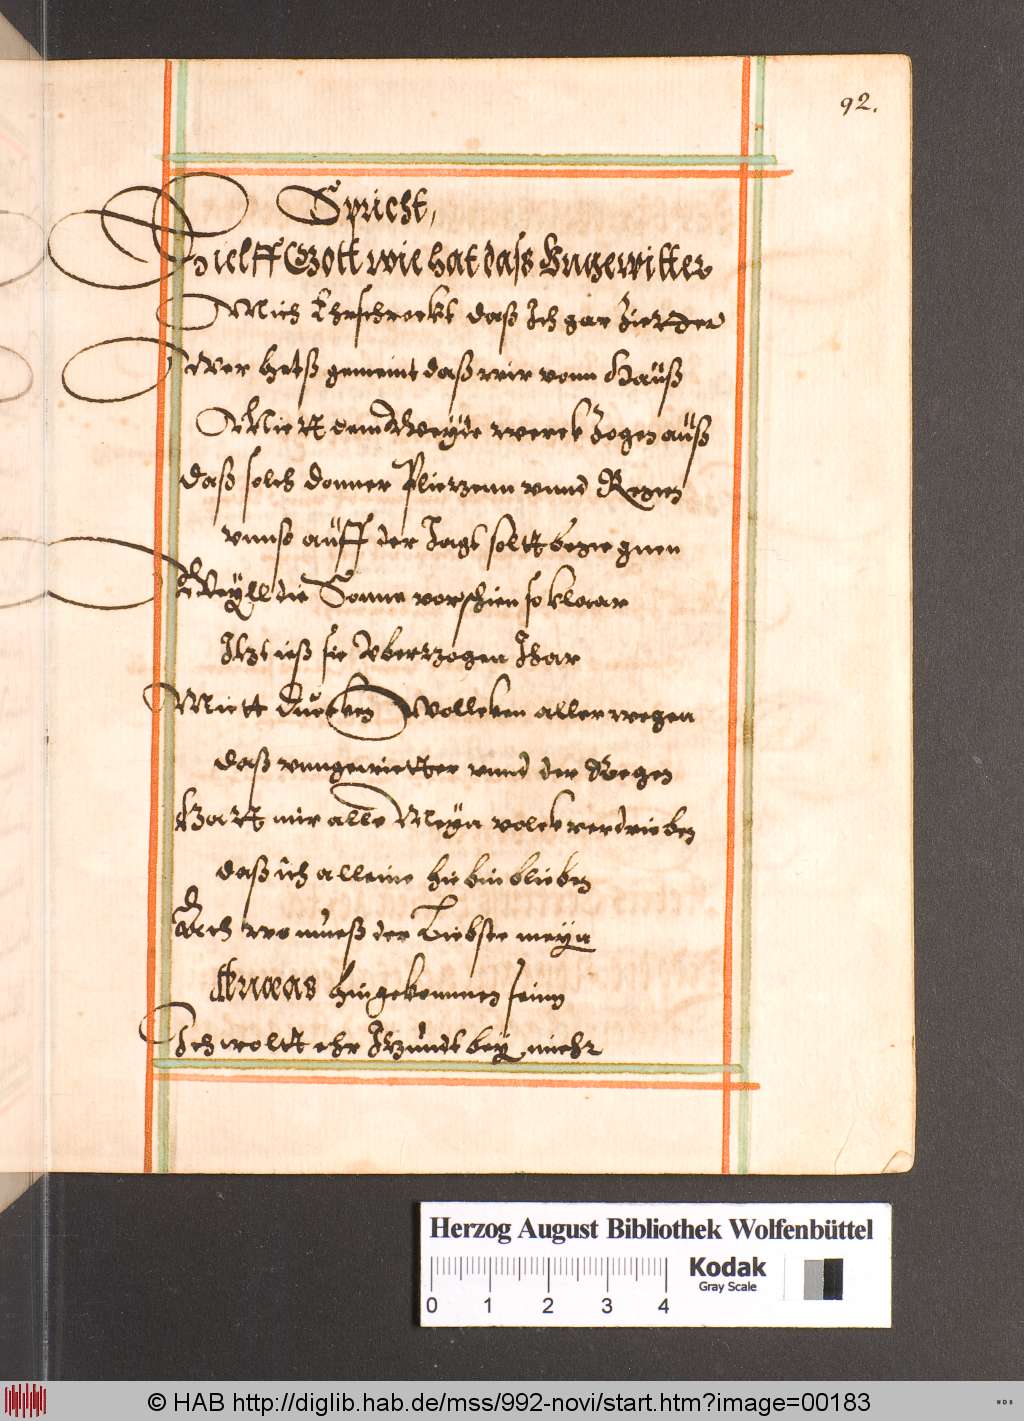 92.
Spricht,
Hielff Gott wie hat dass Vngewitter
Mich Ehrschreckt daß Ich gar Zietder
Wer hetß gemeint daß wir vonn Hauß
Miett dem Weyde werck Zogen auß
daß solch donner Plietzenn vnnd Regen
vnnß auff der Jagt soltt beziegnen
Weyll die Sonne vorschien so klaar
Itzt ieß sie Vberzogen Ihar
Miett duecken Wolleken aller wegen
daß vnngewietter vnnd der Regen
Hatt mir alle Meyn volck verdrieben
daß ich alleine hie bin blieben
Ach wo mueß der Liebste meyn
Aeneas hingekommen seinn
Ich woltt ehr Itzundt bey miehr
Herzog August Bibliothek Wolfenbüttel
Kodak
Gray Scale
0 1 2 3 4
© HAB http://diglib.hab.de/mss/992-novi/start.htm?image=00183